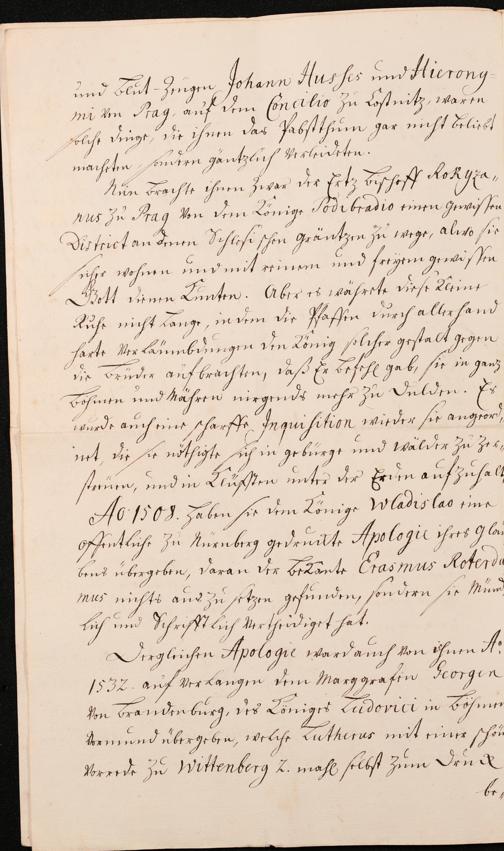 und Blut-Zeugen, Johann Husses und Hierony-
mi von Prag, auf dem Concilio zu Costnitz, waren
solche Dinge, die ihnen das Pabstthum gar nicht beliebt
macheten, sondern gäntzlich verleideten.
Nun brachte ihnen zwar der Ertz Bischoff Rokyza-
nus zu Prag von dem Könige Podibradio einen gewissen
District an denen Schlesischen Gräntzen zu wege, alwo sie
sicher wohnen und mit reinem und freyem gewissen
Gott dienen Kunten. Aber es währete diese Kleine
Ruhe nicht Lange, indem die Pfaffen durch allerhand
harte Verläumbdungen den König solcher gestalt gegen
die Brüder aufbrachten, daß Er befehl gab, sie in gantz
Böhmen und Mähren nirgends mehr zu Dulden. Es
wurde auch eine scharffe Inquisition wieder sie angeord-
net, die sie nöthigte sich in gebürge und wälder zu zer-
streuen, und in Klüfften unter der Erden aufzuhalt
Ao. 1508. haben sie dem Könige Wladislao eine
offentliche zu Nürnberg gedruckte Apologie ihres Glau
bens übergeben, daran der bekante Erasmus Roteroda
mus nichts auszusetzen gefunden, sondern sie Münd
lich und Schrifftlich vertheidiget hat.
Dergleichen Apologie ward auch von ihnen Ao.
1532. auf verlangen dem Marggrafen Georgen
von Brandenburg, des Königes Ludovici in Böhmen
Vormund übergeben, welche Lutherus mit einer schön
Vorrede zu Wittenberg 2. mahl selbst zum Druck
be-